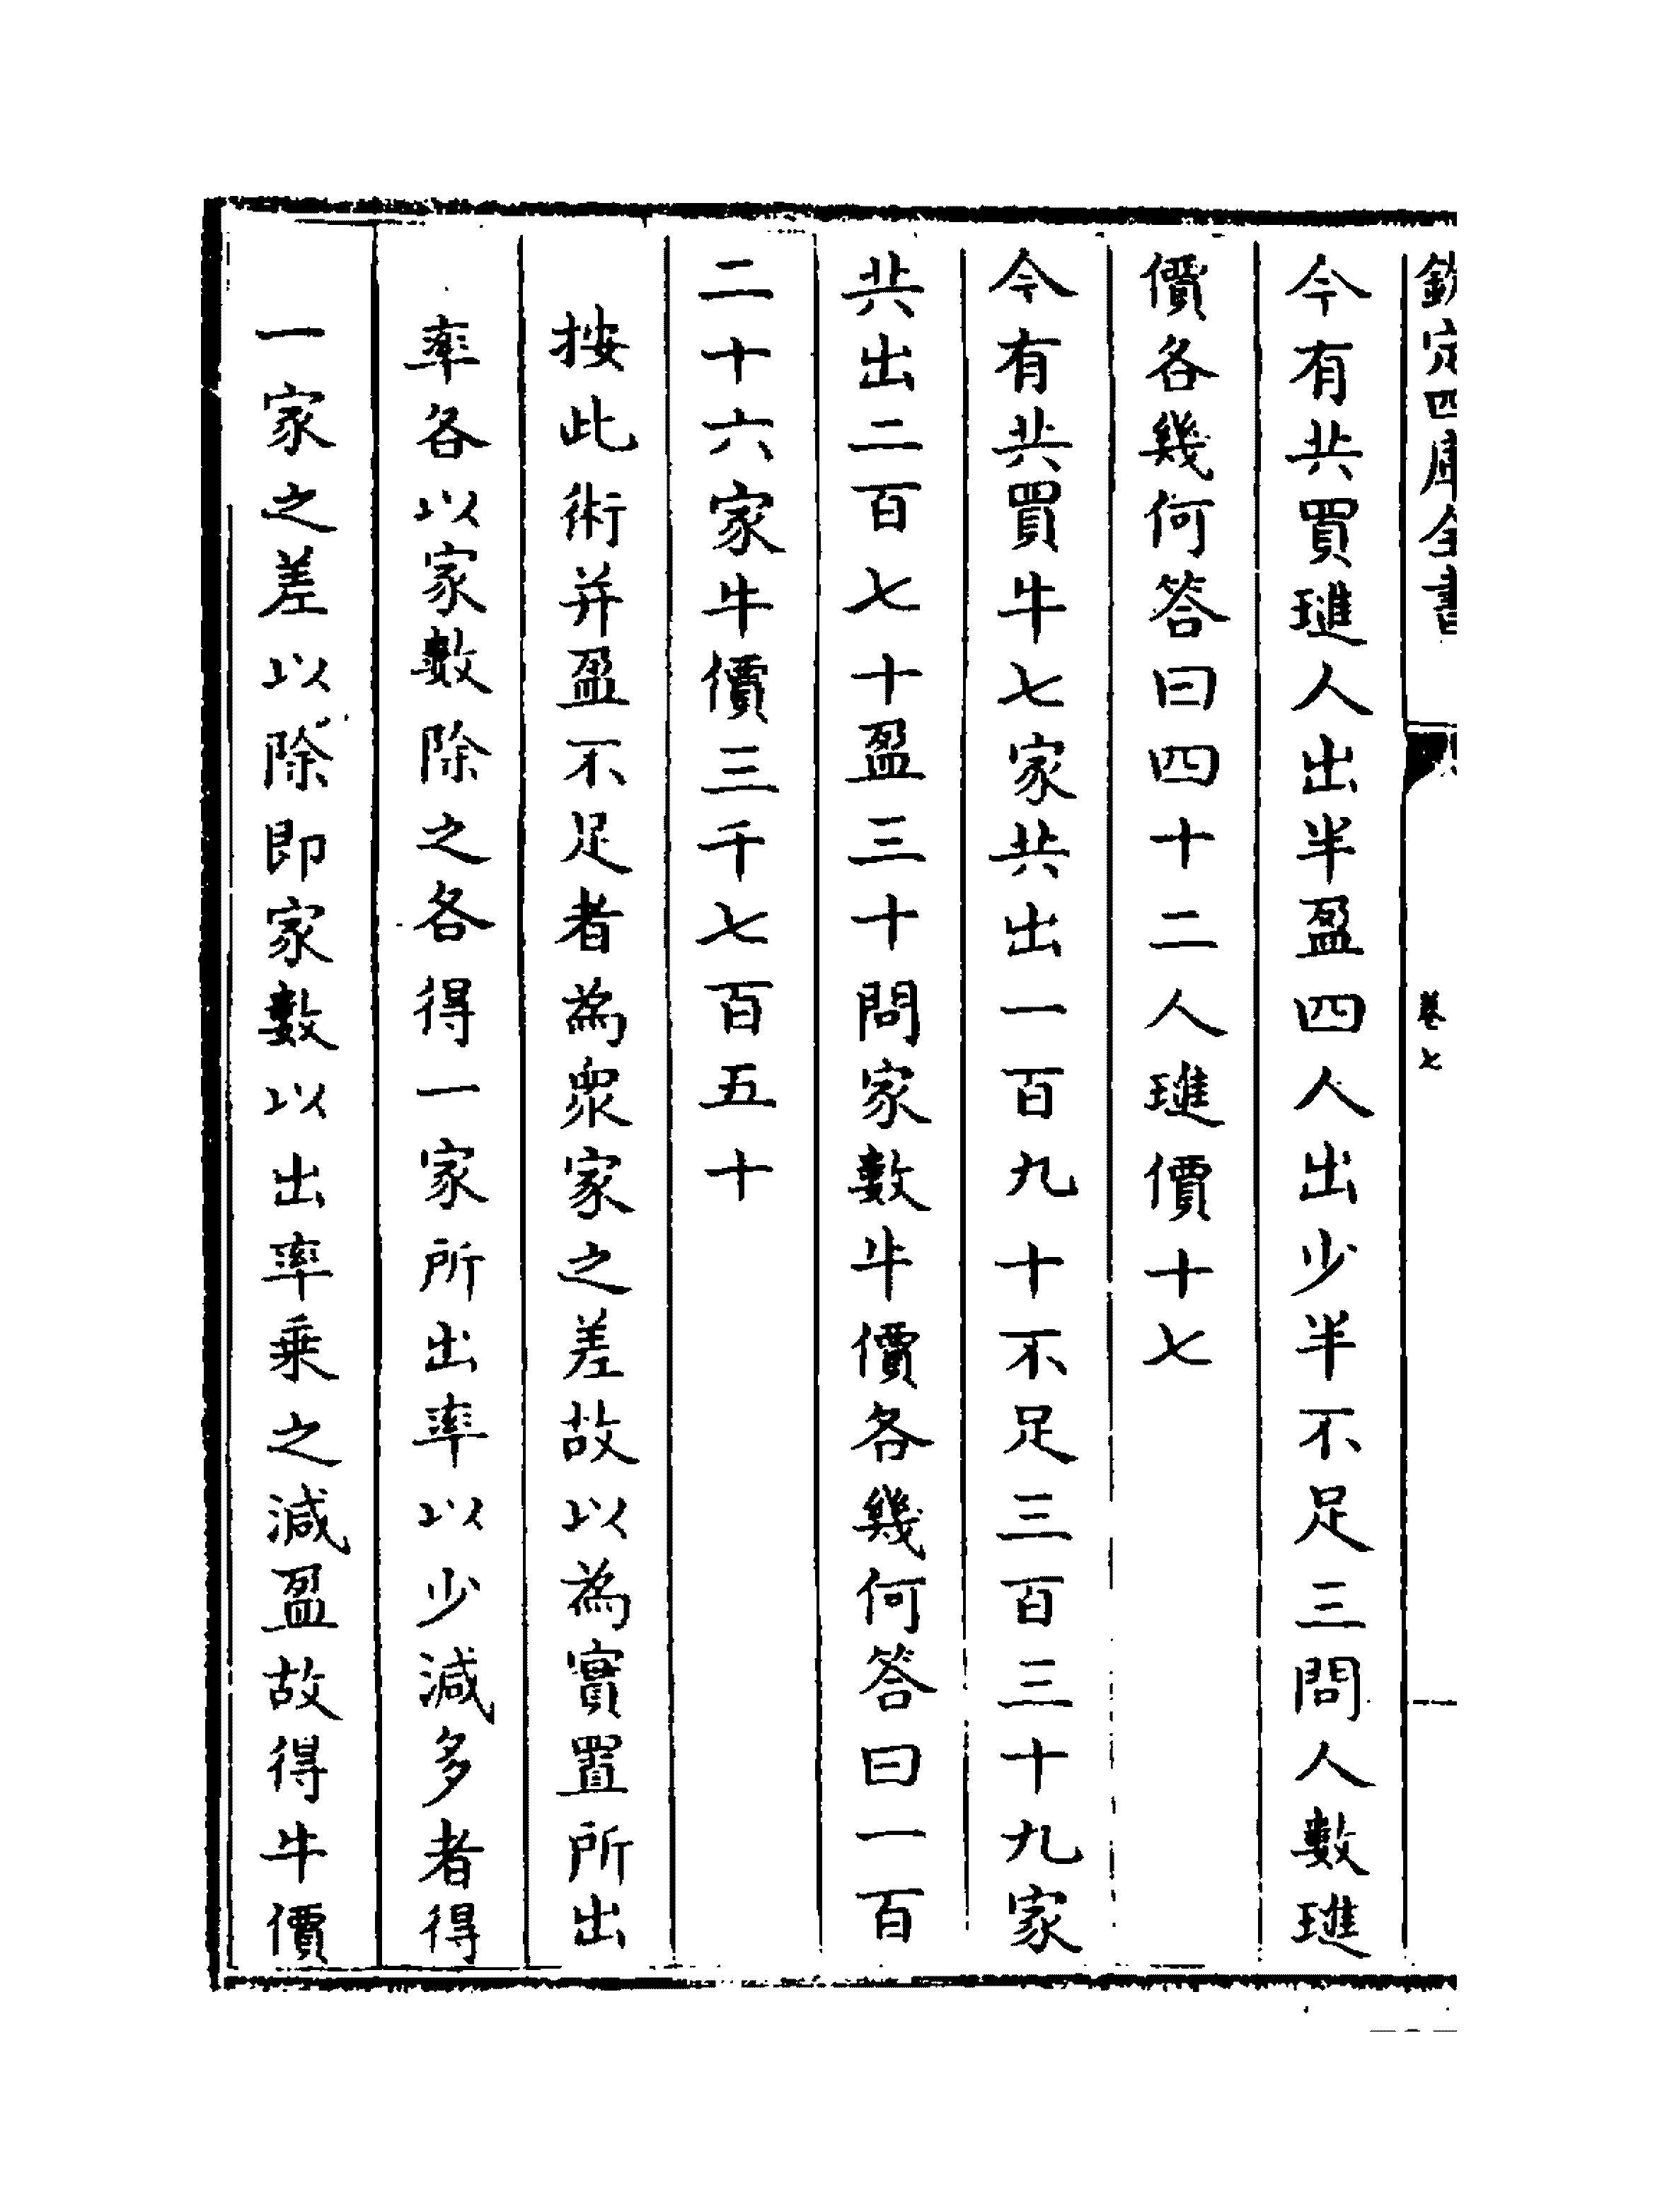 欽定四庫全書 卷七
今有共買璡人出半盈四人出少半不足三問人數璡
價各幾何答曰四十二人璡價十七
今有共買牛七家共出一百九十不足三百三十九家
共出二百七十盈三十問家數牛價各幾何答曰一百
二十六家牛價三千七百五十
按此術并盈不足者為衆家之差故以為實置所出
率各以家數除之各得一家所出率以少減多者得
一家之差以除即家數以出率乗之減盈故得牛價